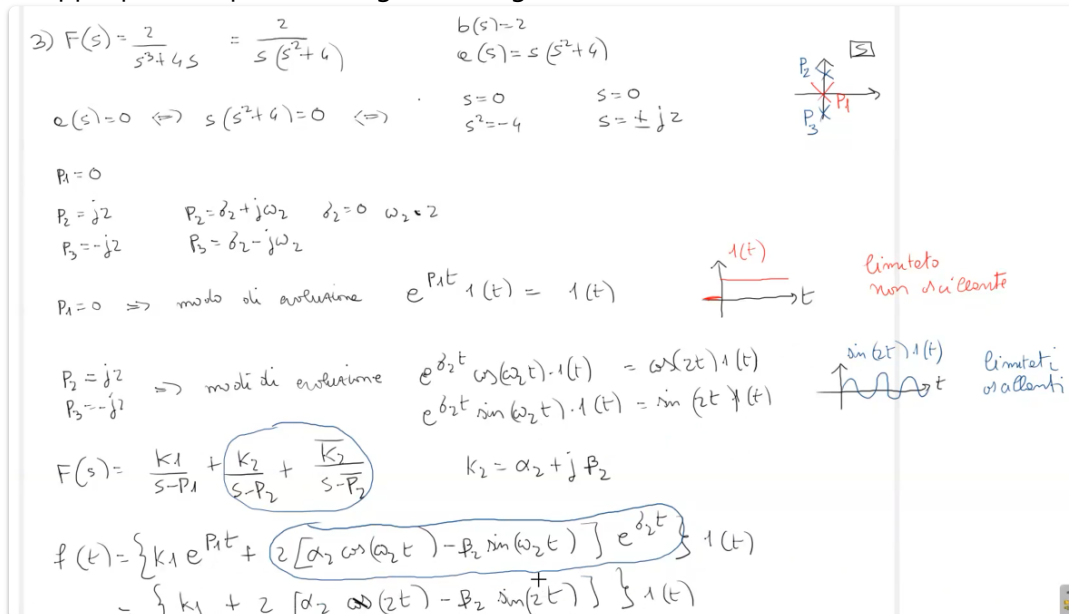 3) F(s) = 2/(s³+4s) = 2/(s(s²+4))
b(s)=2
a(s)=s(s²+4)
a(s)=0 ⟺ s(s²+4)=0 ⟺
s=0
s²=-4
s=0
s=±j2
s
P2
P1
P3
P1=0
P2=j2 P2=σ2+jω2 σ2=0 ω2=2
P3=-j2 P3=σ2-jω2
P1=0 ⇒ modo di evoluzione e^{P1t} 1(t) = 1(t)
1(t)
t
limitato
non oscillante
P2=j2
P3=-j2
⇒ modi di evoluzione e^{σ2t} cos(ω2t)·1(t) = cos(2t)1(t)
e^{σ2t} sin(ω2t)·1(t) = sin(2t)1(t)
sin(2t)1(t)
t
limitati
oscillenti
F(s)= K1/(s-P1) + K2/(s-P2) + K̅2/(s-P̅2) K2=α2+jβ2
f(t)={K1 e^{P1t} + 2[α2 cos(ω2t) - β2 sin(ω2t)] e^{σ2t}} 1(t)
= {K1 + 2 [α2 cos(2t) - β2 sin(2t)]} 1(t)